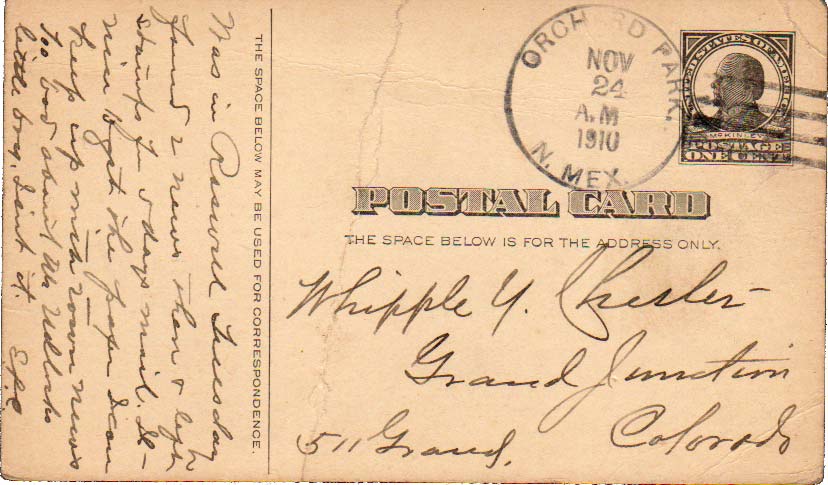 THE SPACE BELOW MAY BE USED FOR CORRESPONDENCE.
Was in Roswell Tuesday
found 2 news then & left
stamps for days mail. It
nice to get the paper I can
keep up with town news
Too bad about Mr
little boy, isn't it.
ORCHARD PARK.
NOV
24
A.M
1910
N. MEX.
UNITED STATES OF AMERICA
McKINLEY
POSTAGE
ONE CENT
POSTAL CARD
THE SPACE BELOW IS FOR THE ADDRESS ONLY.
Whipple Y. Chester
Grand Junction
511 Grand, Colorado